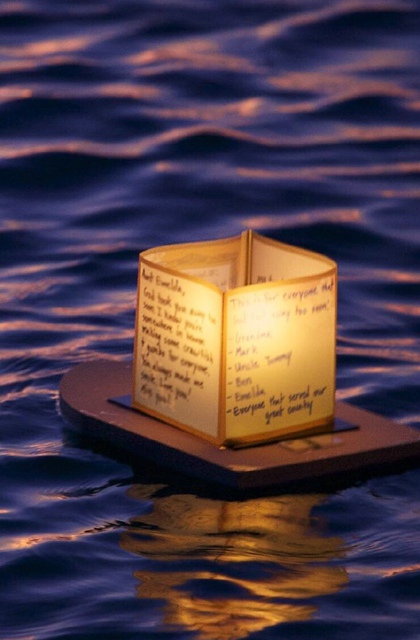 Aunt Emelda,
God took you away too
soon. I know you're
somewhere in heaven
making some crawfish
& gumbo for everyone.
You always made me
smile. I love you!
This is for everyone that
left way too soon:
- Grandma
- Mark
- Uncle Tommy
- Ben
- Emelda
- Everyone that served our
great country